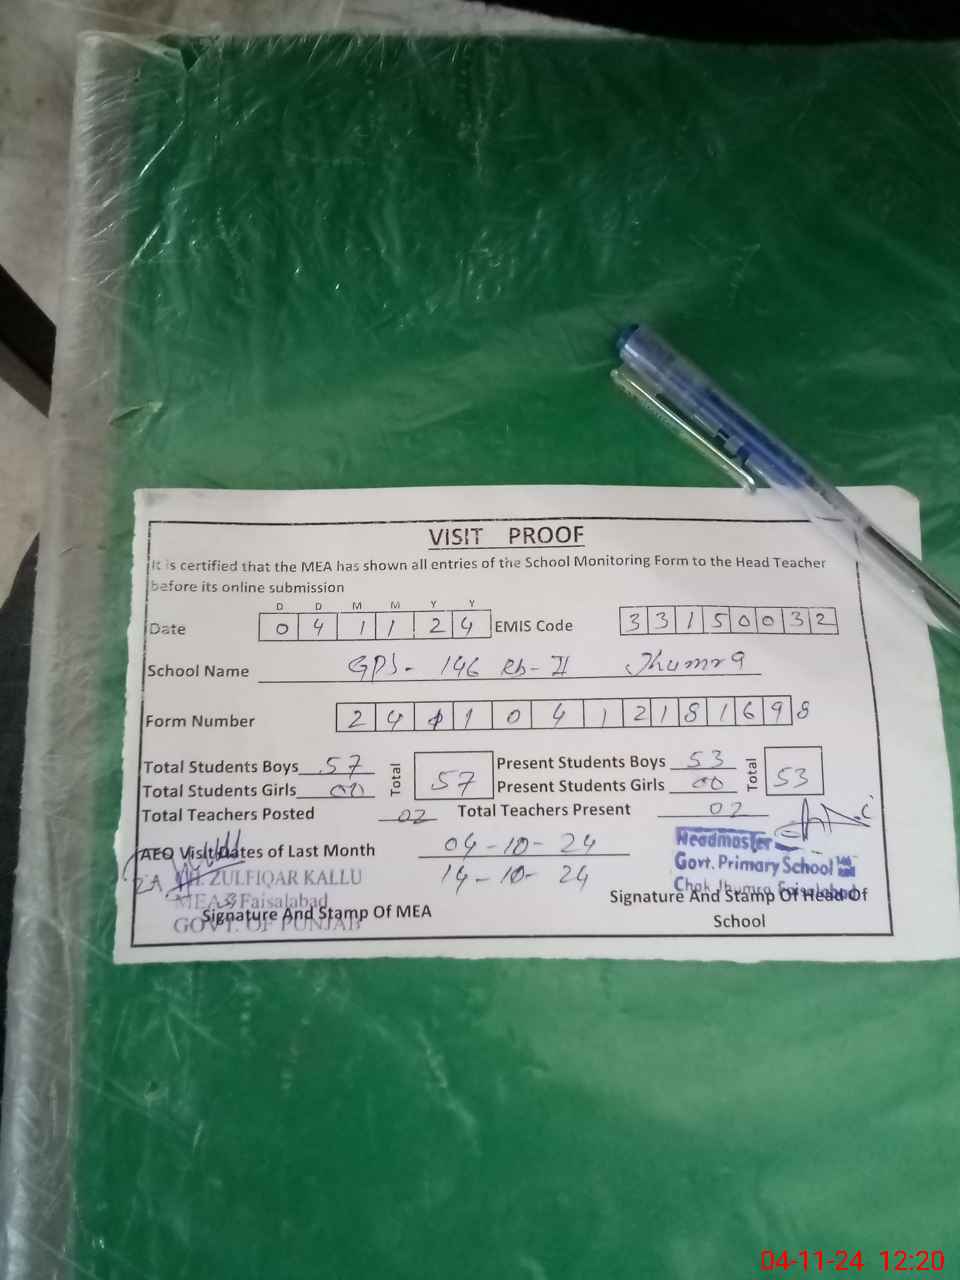 VISIT PROOF
It is certified that the MEA has shown all entries of the School Monitoring Form to the Head Teacher
before its online submission
D D M M Y Y
Date 0 4 1 1 2 4 EMIS Code 3 3 1 5 0 0 3 2
School Name GPS- 146 RB-II Jhumra
Form Number 2 4 1 1 0 4 1 2 1 8 1 6 9 8
Total Students Boys 57 Total 57 Present Students Boys 53 Total 53
Total Students Girls 00 Present Students Girls 00
Total Teachers Posted 02 Total Teachers Present 02
AEO Visit Dates of Last Month 04-10-24
14-10-24
Headmaster
Govt. Primary School
Chak Jhumra Faisalabad
ZULFIQAR KALLU
MEA Faisalabad
GOVT. OF PUNJAB
Signature And Stamp Of MEA
Signature And Stamp Of Head Of
School
04-11-24 12:20